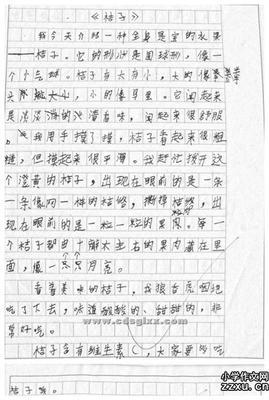 《桔子》
我今天介绍一种全身是宝的水果
桔子。它的形状是圆球形,像一
个个气球。桔子有大有小,大的像拳
头那么大,小的像
是淡淡的清香味,闻起来很舒服
。我用手摸了摸,桔子看起来很粗
糙,但摸起来很平滑。我赶忙拨开这
个澄黄的桔子,出现在眼前的是一条
一条像网一样的桔络,撕掉桔络,出
现在眼前的是一粒一粒的果肉。每一
个桔子都由十瓣左右的果肉藏在里
面,像一只只月亮。
看着美味的桔子,我狼吞虎咽把
吃了下去,味道酸酸的、甜甜的,非
常好吃。
桔子含有维生素C,大家要多吃
桔子哦。
www.cdsglxx.com
小学作文网
zzxu.cn